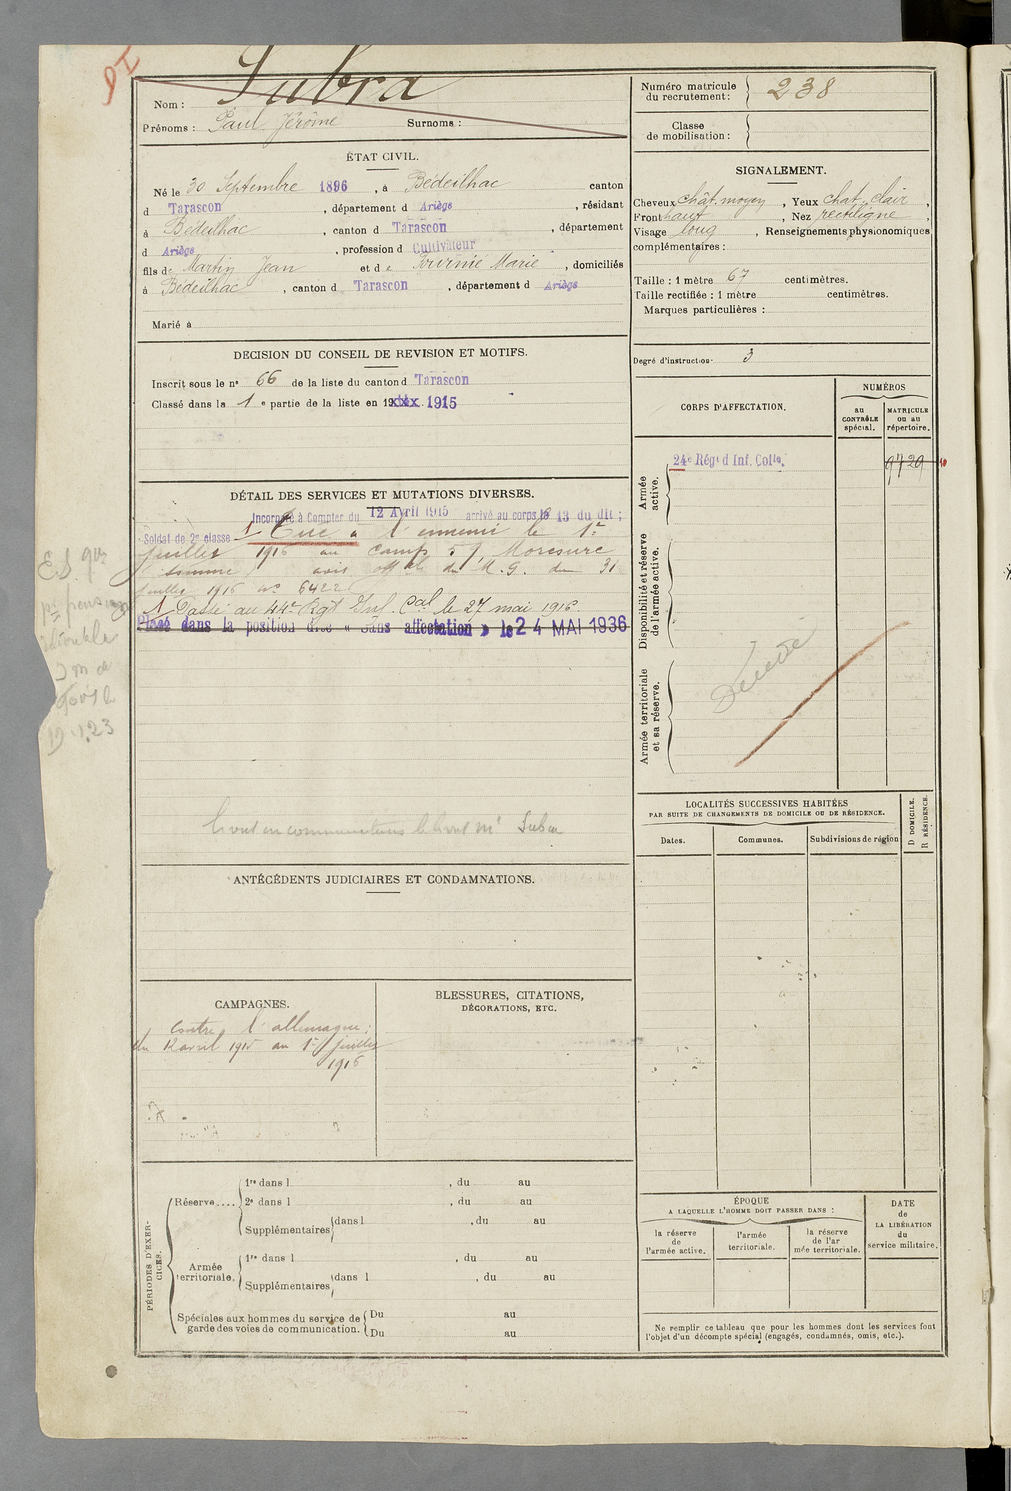 DI
Nom : Subra
Prénoms : Paul Jérôme Surnoms :
Numéro matricule du recrutement : 238
Classe de mobilisation :
ÉTAT CIVIL.
Né le 30 Septembre 1896, à Bédeilhac canton
d Tarascon, département d Ariège, résidant
à Bédeilhac, canton d Tarascon, département
d Ariège, profession d Cultivateur
fils de Martin Jean et de Fournié Marie, domiciliés
à Bédeilhac, canton d Tarascon, département d Ariège
Marié à
SIGNALEMENT.
Cheveux chât. moyen, Yeux chat. clair,
Front haut, Nez rectiligne,
Visage long, Renseignements physionomiques
complémentaires :
Taille : 1 mètre 67 centimètres.
Taille rectifiée : 1 mètre centimètres.
Marques particulières :
Degré d'instruction 3
DECISION DU CONSEIL DE REVISION ET MOTIFS.
Inscrit sous le n° 66 de la liste du canton d Tarascon
Classé dans la 1e partie de la liste en 19xxx 1915
CORPS D'AFFECTATION.
NUMÉROS
au CONTRÔLE spécial.
MATRICULE ou au répertoire.
Armée active.
24e Régt d Inf. Colle.
9729
Disponibilité et réserve de l'armée active.
Armée territoriale et sa réserve.
Décédé
DÉTAIL DES SERVICES ET MUTATIONS DIVERSES.
Incorporé à Compter du 12 Avril 1915 arrivé au corps le 13 du dit ;
Soldat de 2e classe 1 Tué à l'ennemi le 1er
juillet 1916 au camp
(Somme) avis du M. G. du 31
juillet 1916 no 6422
1 Passé au 44e Rgt Inf. Cal le 27 mai 1916.
Placé dans la position dite « Sans affectation » le 24 MAI 1936
Subra
ANTÉCÉDENTS JUDICIAIRES ET CONDAMNATIONS.
LOCALITÉS SUCCESSIVES HABITÉES
PAR SUITE DE CHANGEMENTS DE DOMICILE OU DE RÉSIDENCE.
Dates.
Communes.
Subdivisions de région
D DOMICILE.
R RÉSIDENCE.
CAMPAGNES.
Contre l'allemagne ;
du 12 avril 1915 au 1er juillet
1916
BLESSURES, CITATIONS,
DÉCORATIONS, ETC.
PÉRIODES D'EXERCICES.
Réserve....
1re dans l , du au
2e dans l , du au
Supplémentaires dans l , du au
Armée territoriale.
1re dans l , du au
Supplémentaires dans l , du au
Spéciales aux hommes du service de garde des voies de communication.
Du au
Du au
ÉPOQUE
A LAQUELLE L'HOMME DOIT PASSER DANS :
la réserve de l'armée active.
l'armée territoriale.
la réserve de l'armée territoriale.
DATE de LA LIBÉRATION du service militaire.
Ne remplir ce tableau que pour les hommes dont les services font
l'objet d'un décompte spécial (engagés, condamnés, omis, etc.).